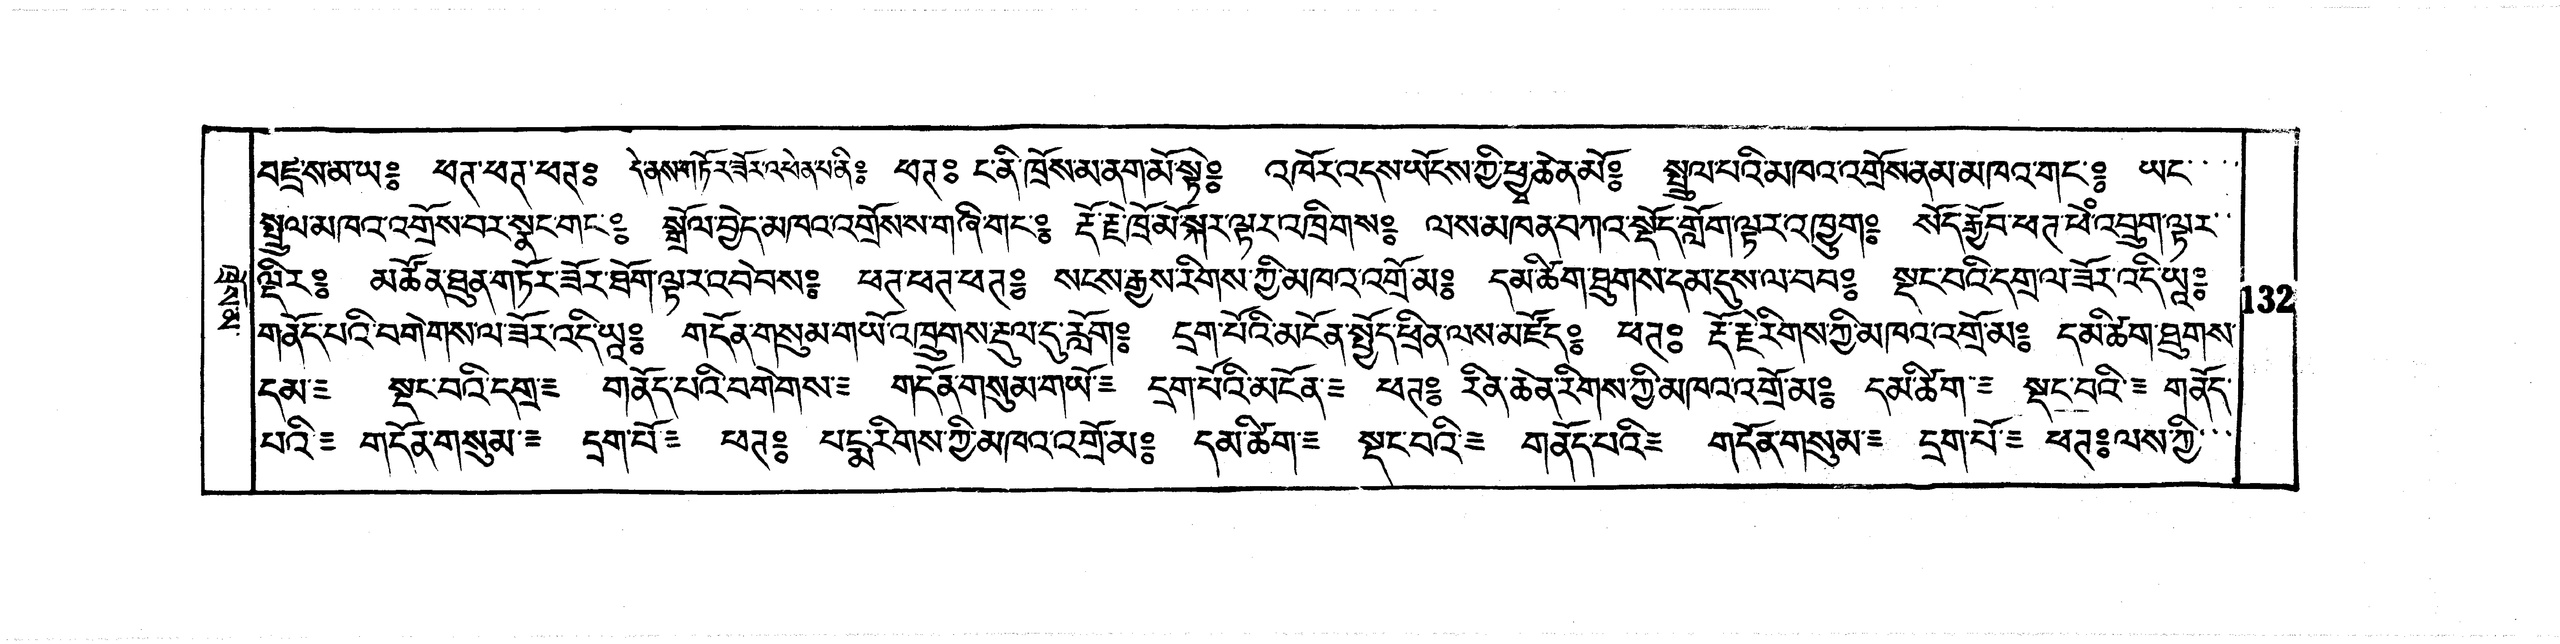 བཛྲ་ས་མ་ཡ༔ ཕཊ་ཕཊ་ཕཊ༔ དེ་ནས་གཏོར་ཟློར་འཕེན་པ་ནི༔ ཕཊ༔ ང་ནི་ཁྲོས་མ་ནག་མོ་སྟེ༔ འཁོར་འདས་ཡོངས་ཀྱི་ཕྱྭ་ཆེན་མོ༔ སྤྲུལ་པའི་མཁའ་འགྲོས་ནམ་མཁའ་གང་༔ ཡང་
སྤྲུལ་མཁའ་འགྲོས་བར་སྣང་གང་༔ སྒྲོལ་བྱེད་མཁའ་འགྲོས་ས་གཞི་གང་༔ རྡོ་རྗེ་ཁྲོ་མོ་སྐར་ལྟར་འཁྲིགས༔ ལས་མཁན་བཀའ་སྡོད་གློག་ལྟར་འཁྱུག༔ སོད་རྒྱོབ་ཕཊ་ཕེཾ་འབྲུག་ལྟར་
ལྡིར༔ མཚོན་ཐུན་གཏོར་ཟོར་ཐོག་ལྟར་འབེབས༔ ཕཊ་ཕཊ་ཕཊ༔ སངས་རྒྱས་རིགས་ཀྱི་མཁའ་འགྲོ་མ༔ དམ་ཚིག་ཐུགས་དམ་དུས་ལ་བབ༔ སྡང་བའི་དགྲ་ལ་ཟོར་འདི་ཡཱ༔
གནོད་པའི་བགེགས་ལ་ཟོར་འདི་ཡཱ༔ གདོན་གསུམ་གཡོ་འཁྲུགས་རྡུལ་དུ་རློག༔ དྲག་པོའི་མངོན་སྤྱོད་ཕྲིན་ལས་མཛོད༔ ཕཊ༔ རྡོ་རྗེ་རིགས་ཀྱི་མཁའ་འགྲོ་མ༔ དམ་ཚིག་ཐུགས་
དམ་༴ སྡང་བའི་དགྲ༴ གནོད་པའི་བགེགས་༴ གདོན་གསུམ་གཡོ་༴ དྲག་པོའི་མངོན་༴ ཕཊ༔ རིན་ཆེན་རིགས་ཀྱི་མཁའ་འགྲོ་མ༔ དམ་ཚིག་༴ སྡང་བའི་༴ གནོད་
པའི་༴ གདོན་གསུམ་༴ དྲག་པོ་༴ ཕཊ༔ པདྨ་རིགས་ཀྱི་མཁའ་འགྲོ་མ༔ དམ་ཚིག་༴ སྡང་བའི་༴ གནོད་པའི༴ གདོན་གསུམ་༴ དྲག་པོ་༴ ཕཊ༔ ལས་ཀྱི་
132